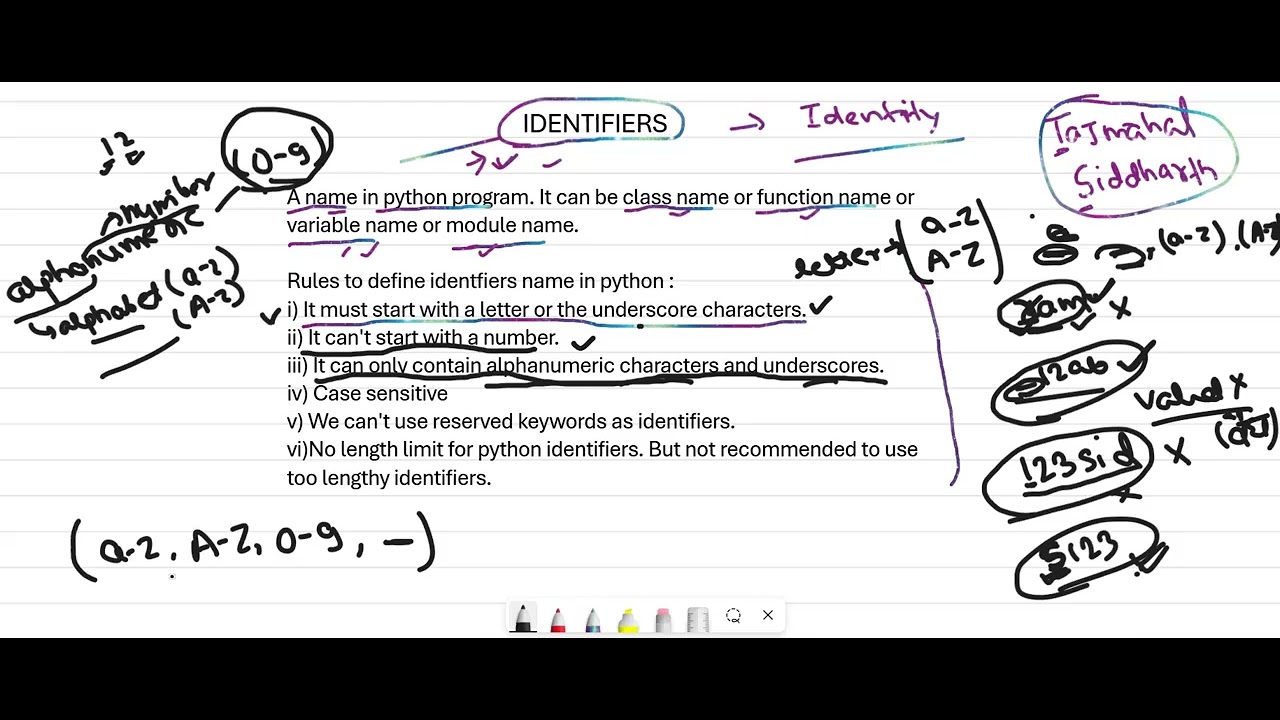 IDENTIFIERS → Identity
Tajmahal
Siddharth
12
(0-9)
number
alphanumeric
alphabet (a-z)
(A-Z)
A name in python program. It can be class name or function name or
variable name or module name.
letter → (a-z
A-Z)
(a-z), (A-Z
Rules to define identfiers name in python :
i) It must start with a letter or the underscore characters.
ii) It can't start with a number.
iii) It can only contain alphanumeric characters and underscores.
iv) Case sensitive
v) We can't use reserved keywords as identifiers.
vi)No length limit for python identifiers. But not recommended to use
too lengthy identifiers.
12ab
valid X
123sid X
S123
(a-z, A-Z, 0-9, _)